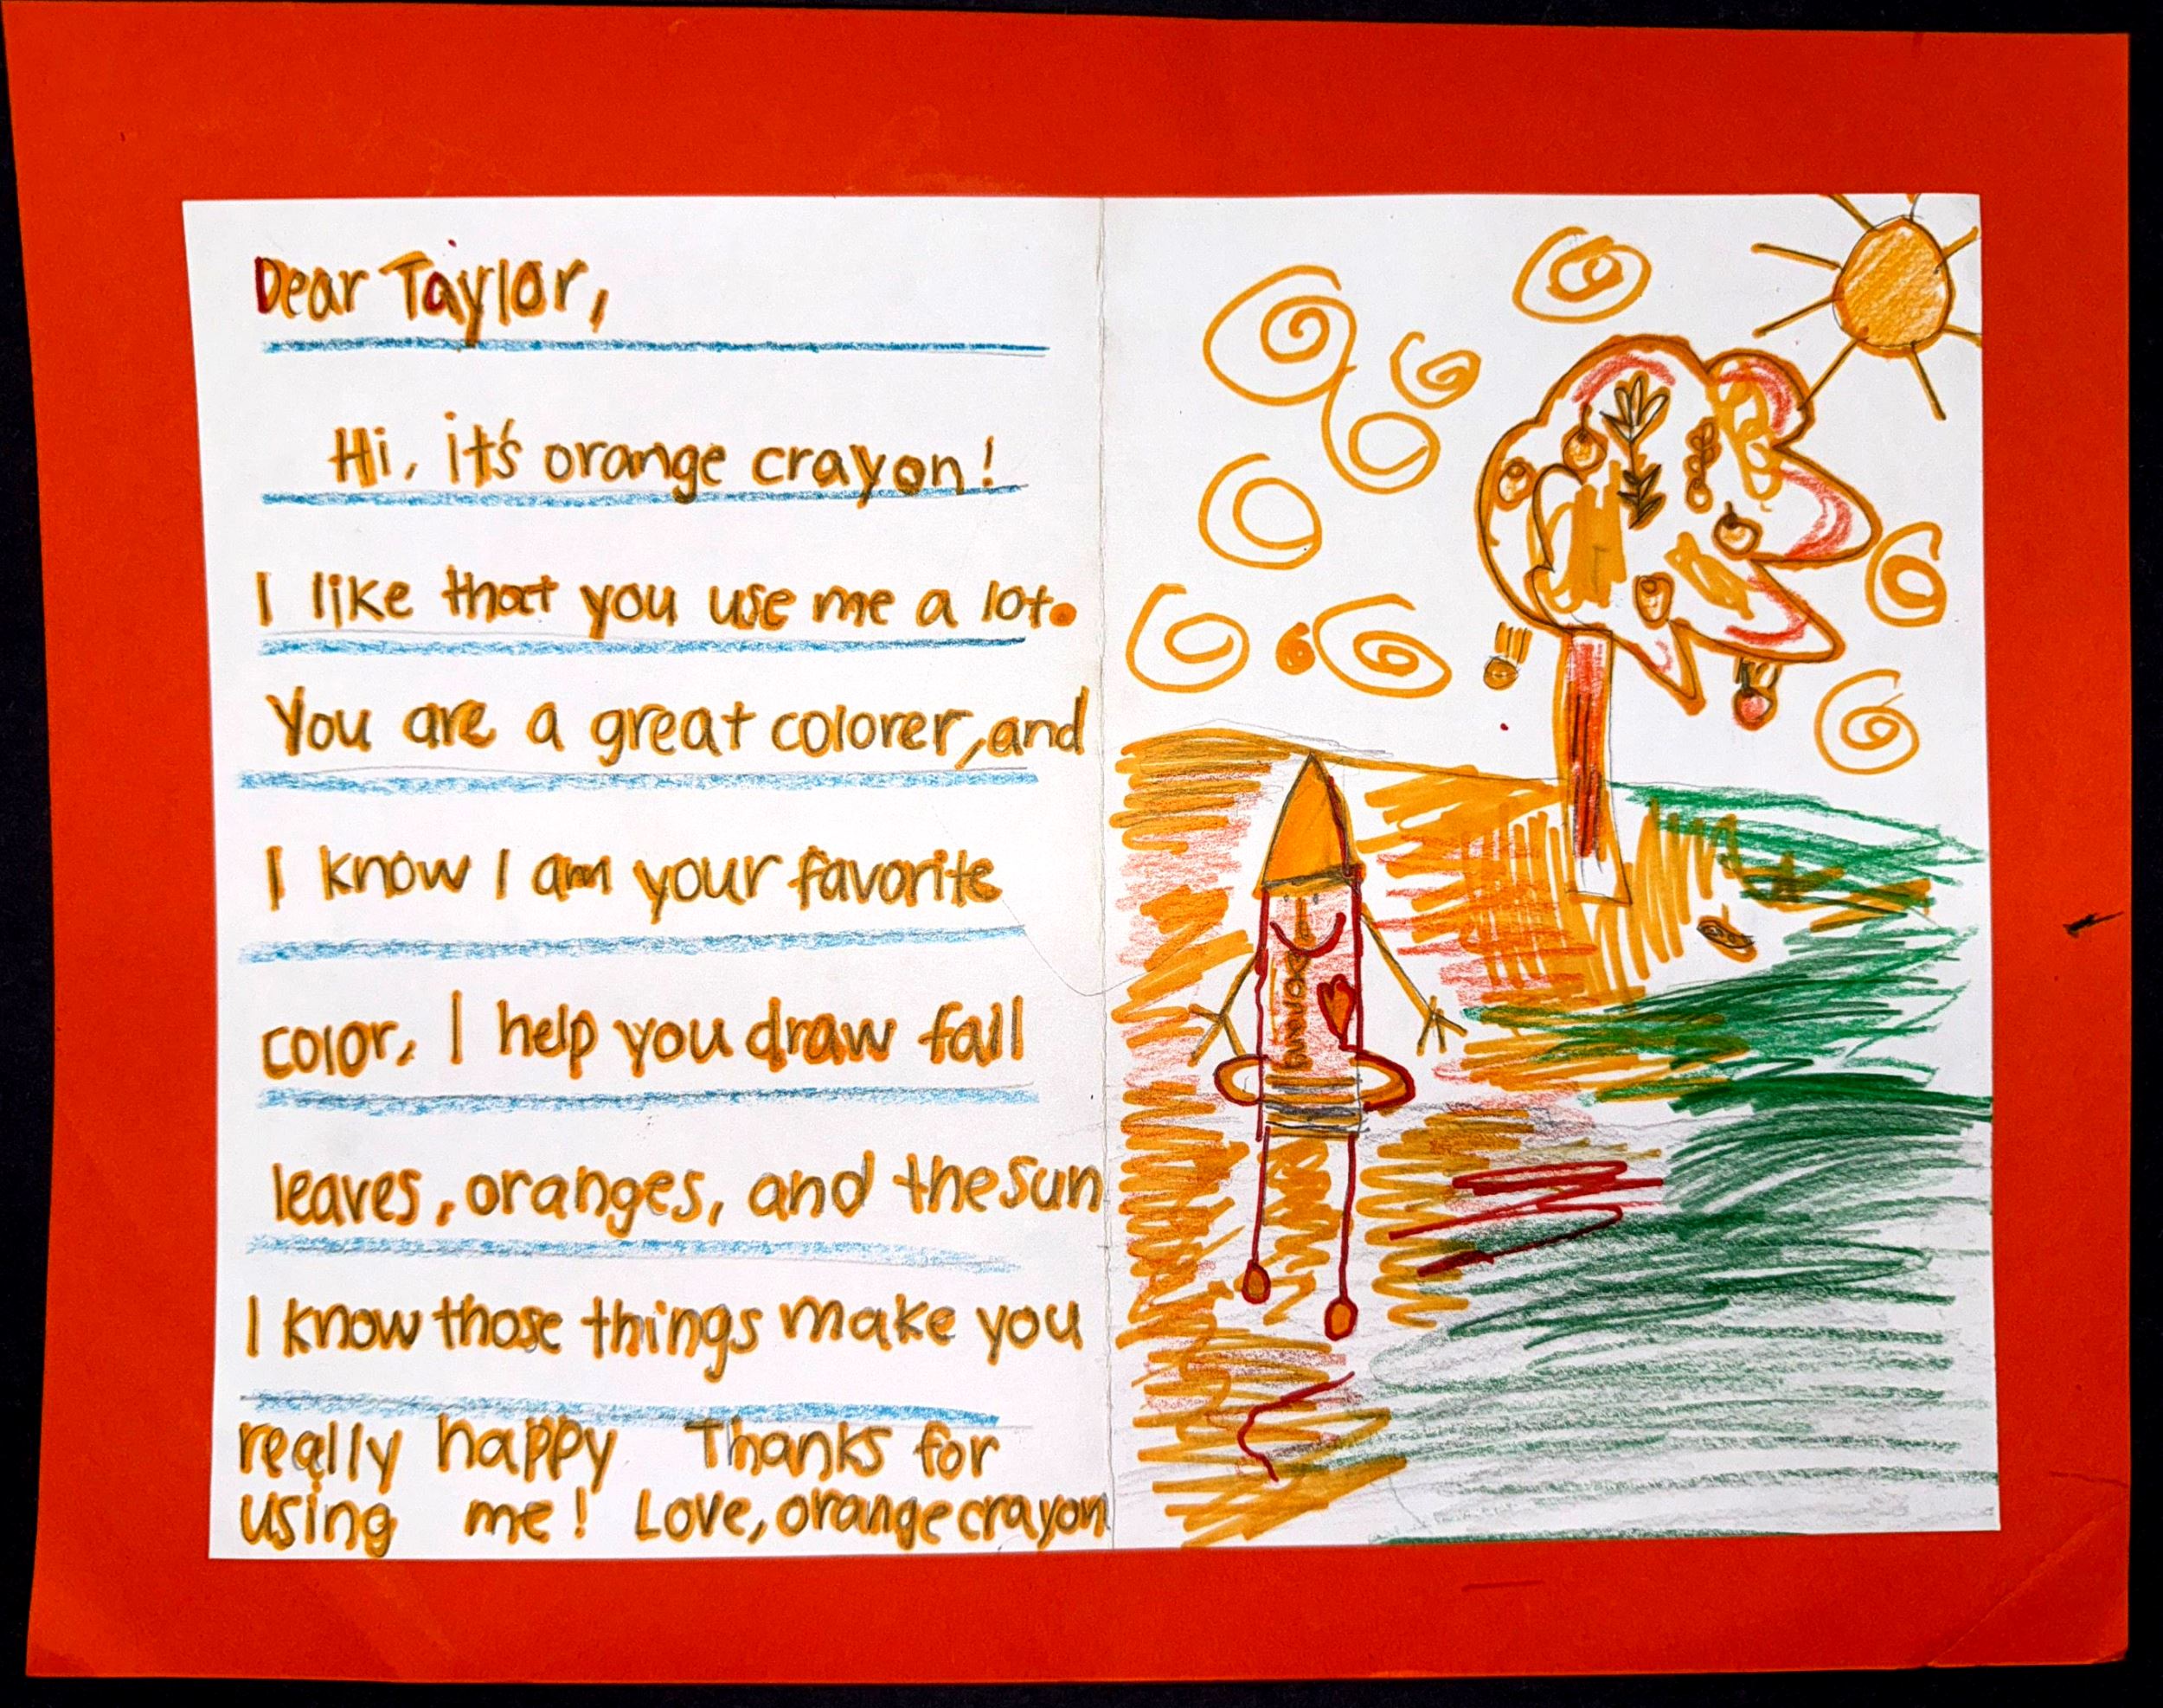 Dear Taylor,
Hi, it's orange crayon!
I like that you use me a lot.
You are a great colorer, and
I know I am your favorite
color, I help you draw fall
leaves, oranges, and the sun
I know those things make you
really happy Thanks for
using me! Love, orange crayon
orang